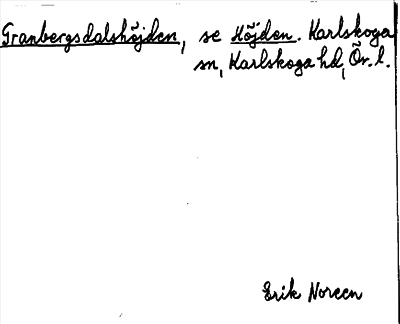 Granbergsdalshöjden, se Höjden. Karlskoga
sn, Karlskoga hd, Ör. l.
Erik Noreen